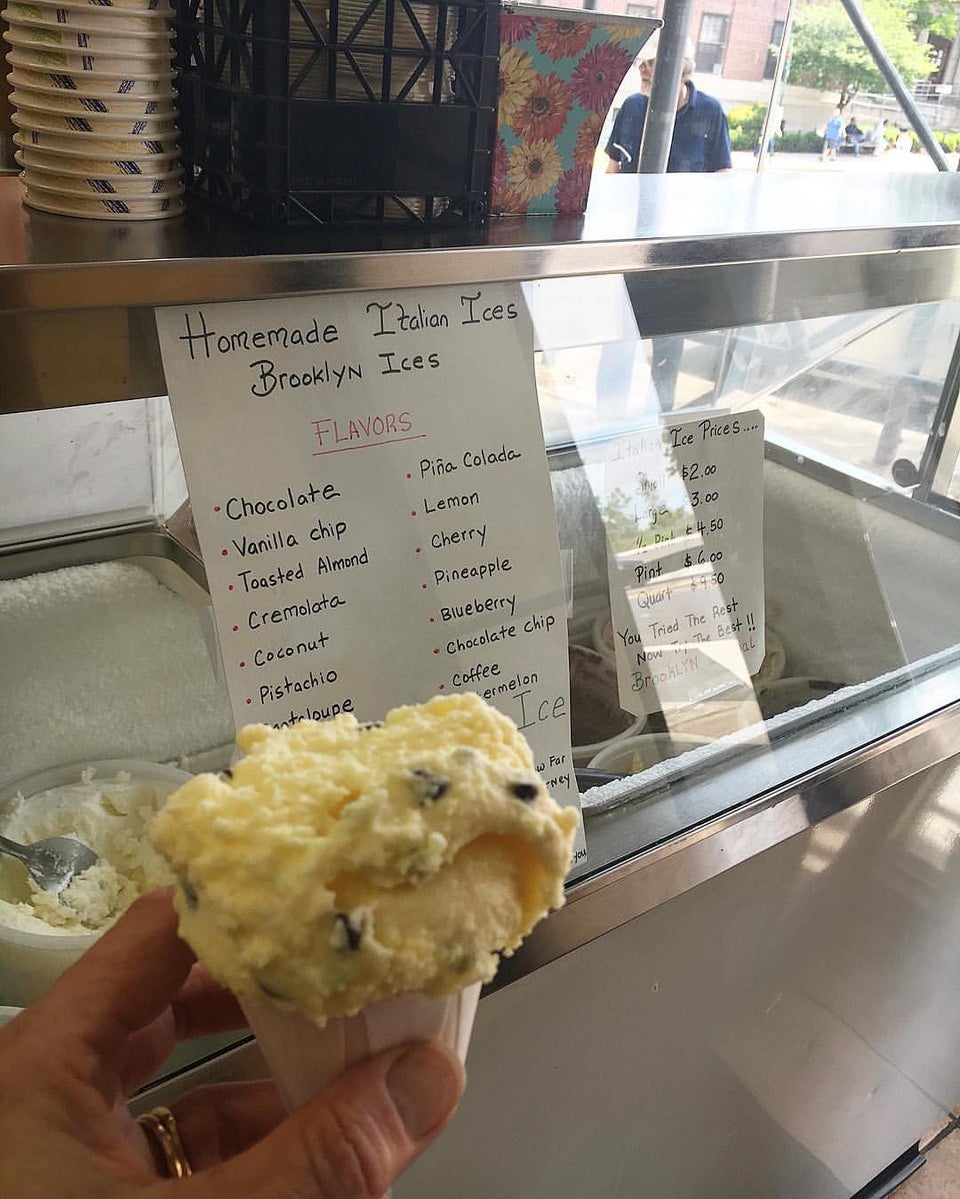 Homemade Italian Ices
Brooklyn Ices
FLAVORS
· Chocolate
· Vanilla chip
· Toasted Almond
· Cremolata
· Coconut
· Pistachio
· Piña Colada
· Lemon
· Cherry
· Pineapple
· Blueberry
· Chocolate chip
· Coffee
Ice
Far
you
Italian Ice Prices....
Small $2.00
Large 3.00
½ Pint $4.50
Pint $6.00
Quart $9.50
You Tried The Rest
Now Try The Best!!
BROOKLYN